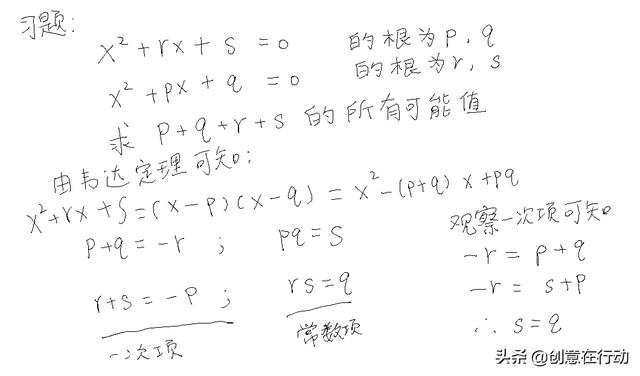 习题:
x²+rx+s=0 的根为p,q
x²+px+q=0 的根为r,s
求 p+q+r+s 的所有可能值
由韦达定理可知:
x²+rx+s=(x-p)(x-q)=x²-(p+q)x+pq
p+q=-r; pq=s
r+s=-p; rs=q
一次项 常数项
观察一次项可知
-r=p+q
-r=s+p
∴s=q
头条 @创意在行动